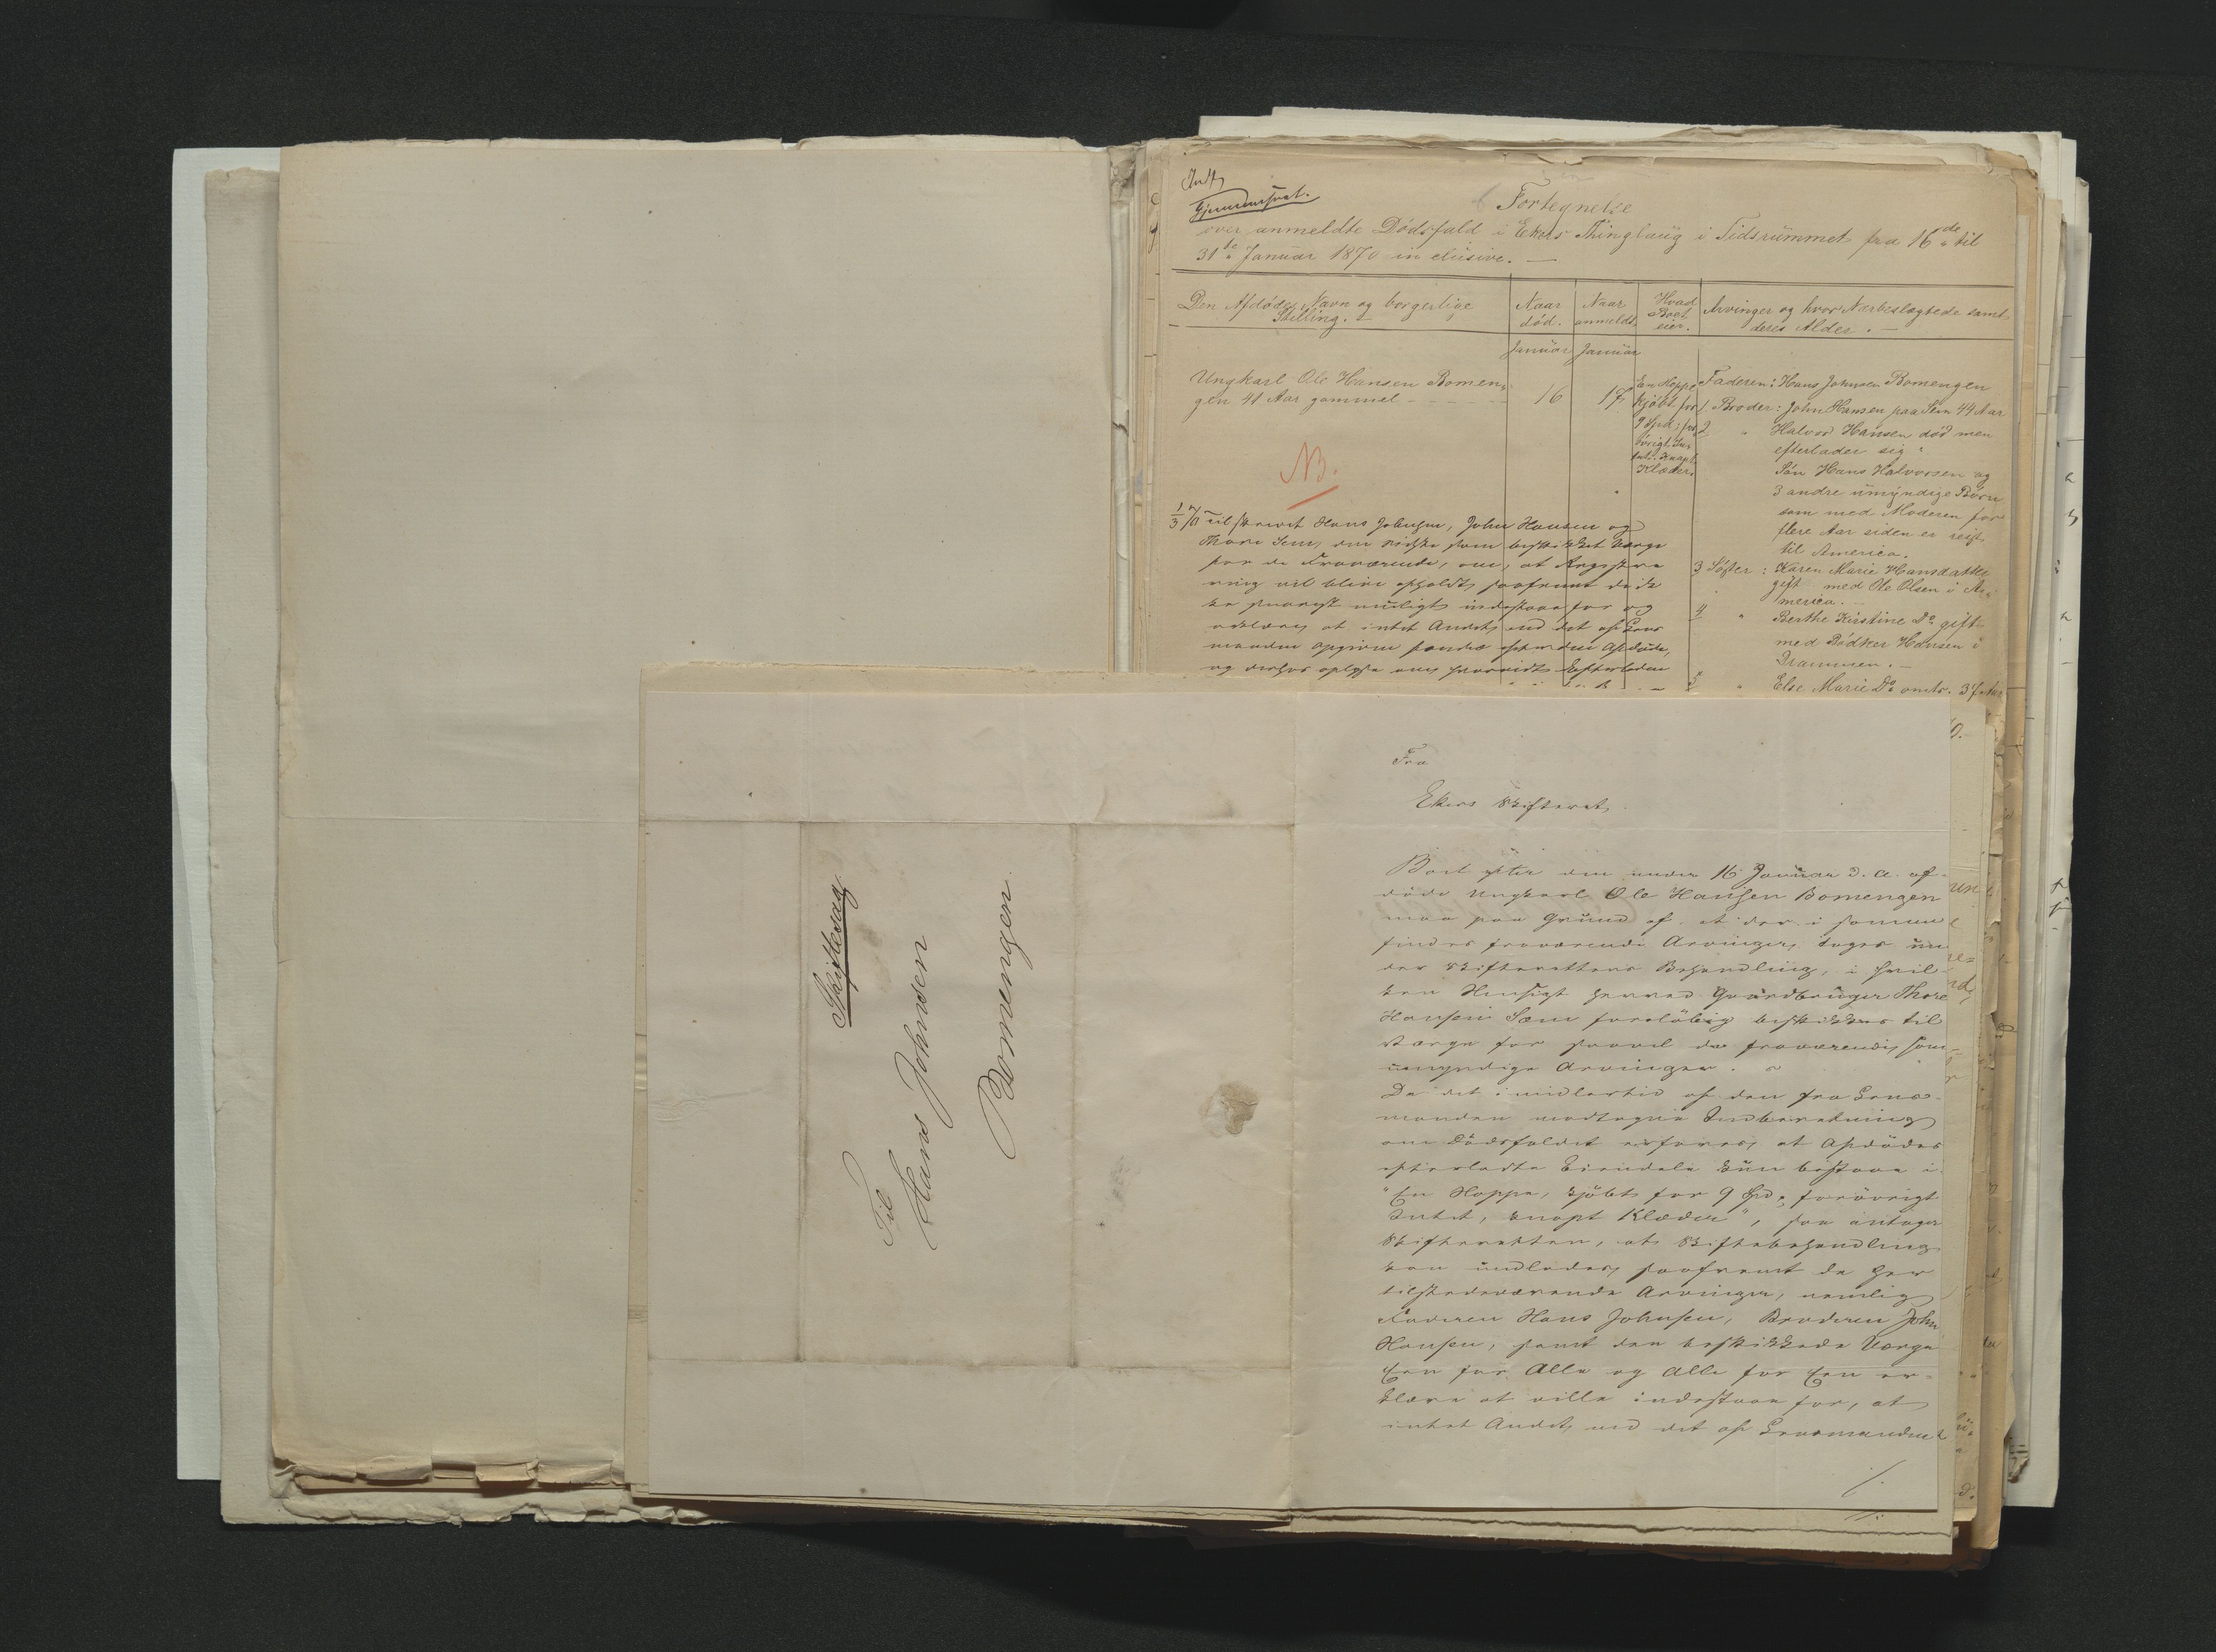 Fortegnelse
over anmeldte Dödsfald i Ekers Thinglaug i Tidsrummet fra 16de til
31te Januar 1870 inclusive. —
Den Afdödes Navn og borgerlige Stilling.
Naar död.
Naar anmeldt.
Hvad Boet eier.
Arvinger og hvor Nærbeslægtede samt deres Alder. —
Januar Januar
Ungkarl Ole Hansen Bomen-
gen 41 Aar gammel - - - - - - 16 17
En Hoppe
kjöbt for
9 Spd; for
övrigt In-
tet. knapt
Klæder.
Faderen: Hans Johnsen Bomengen
1 Broder: John Hansen paa Sem 44 Aar
2 " Halvor Hansen död men
efterlader sig
Sön Hans Halvorsen og
3 andre umyndige Börn
som med Moderen for
flere Aar siden er reist
til America.
3 Söster: Karen Marie Hansdatter
gift med Ole Olsen i A-
merica. —
4 " Berthe Kirstine Do gift
med Bödker Hansen i
Drammen. —
5 " Else Marie Do omtr. 37 Aar
NB.
1/3 70 Tilskrevet Hans Johnsen, John Hansen og
Thore Sem, den sidste som beskikket Værge
for de Fraværende, om, at Registre-
ring vil blive opholdt saafremt de ik-
ke snarest muligt indestaar for og
erklærer at intet Andet end det af Lens-
manden opgivne fandtes efter den Afdöde,
og derhos oplyse om hvorvidt Efterladen
Skiftesag
Til
Hans Johnsen
Bomengen
Fra
Ekers Skifteret.
Boet efter den under 16 Januar d. A. af-
döde Ungkarl Ole Hansen Bomengen
maa paa Grund af, at der i samme
findes fraværende Arvinger, tages un-
der Skifterettens Behandling, i hvil-
ken Hensigt herved Gaardbruger Thore
Hansen Sem foreløbig beskikkes til
Værge for saavel de fraværende som
umyndige Arvinger.
Da det imidlertid af den fra Lens-
manden modtagne Indberetning
om Dödsfaldet erfares, at Afdödes
efterladte Eiendele kun bestaar i
"En Hoppe, kjöbt for 9 Spd; forövrigt
Intet, knapt Klæder", saa antager
Skifteretten, at Skiftebehandling
kan undlades, saafremt de her
tilstedeværende Arvinger, nemlig
Faderen Hans Johnsen, Broderen John
Hansen, samt den beskikkede Værge
Een for Alle og Alle for Een er-
klære at ville indestaa for, at
intet Andet, end det af Lensmanden